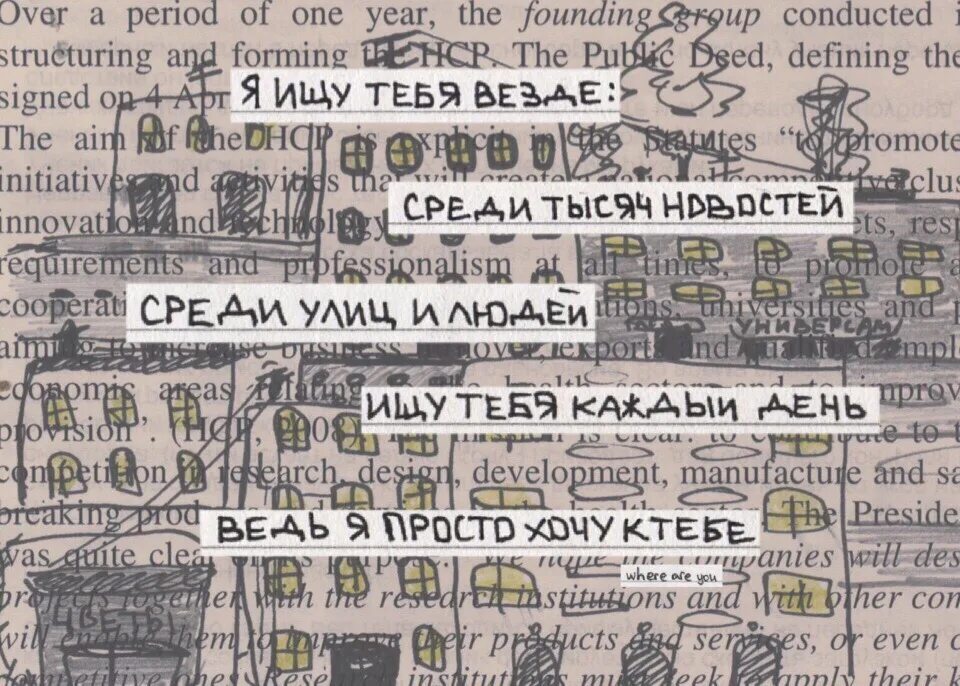 Over a period of one year, the founding group conducted
structuring and forming HCP. The Public Deed, defining the
signed on 4 Apr
Я ИЩУ ТЕБЯ ВЕЗДЕ:
The aim of the HCP is explicit in the Statutes “to promote
initiatives and activities that will create national competitive clus
СРЕДИ ТЫСЯЧ НОВОСТЕЙ
innovation and technology ets, resp
requirements and professionalism at all times, to promote a
СРЕДИ УЛИЦ И ЛЮДЕЙ
cooperati tions, universities and p
УНИВЕРСАМ
aiming to increase business turnover, export and qualified empl
economic areas relating health sector and to improv
ИЩУ ТЕБЯ КАЖДЫЙ ДЕНЬ
provision”. (HCP, 2008). is clear: to contribute to t
competition in research, design, development, manufacture and sa
breaking prod The Preside
ВЕДЬ Я ПРОСТО ХОЧУ К ТЕБЕ
was quite clear purpose: We hope companies will des
where are you
projects together with the research institutions and with other com
ЦВЕТЫ
will enable them to improve their products and services, or even c
competitive ones. Research institutions must seek to apply their k